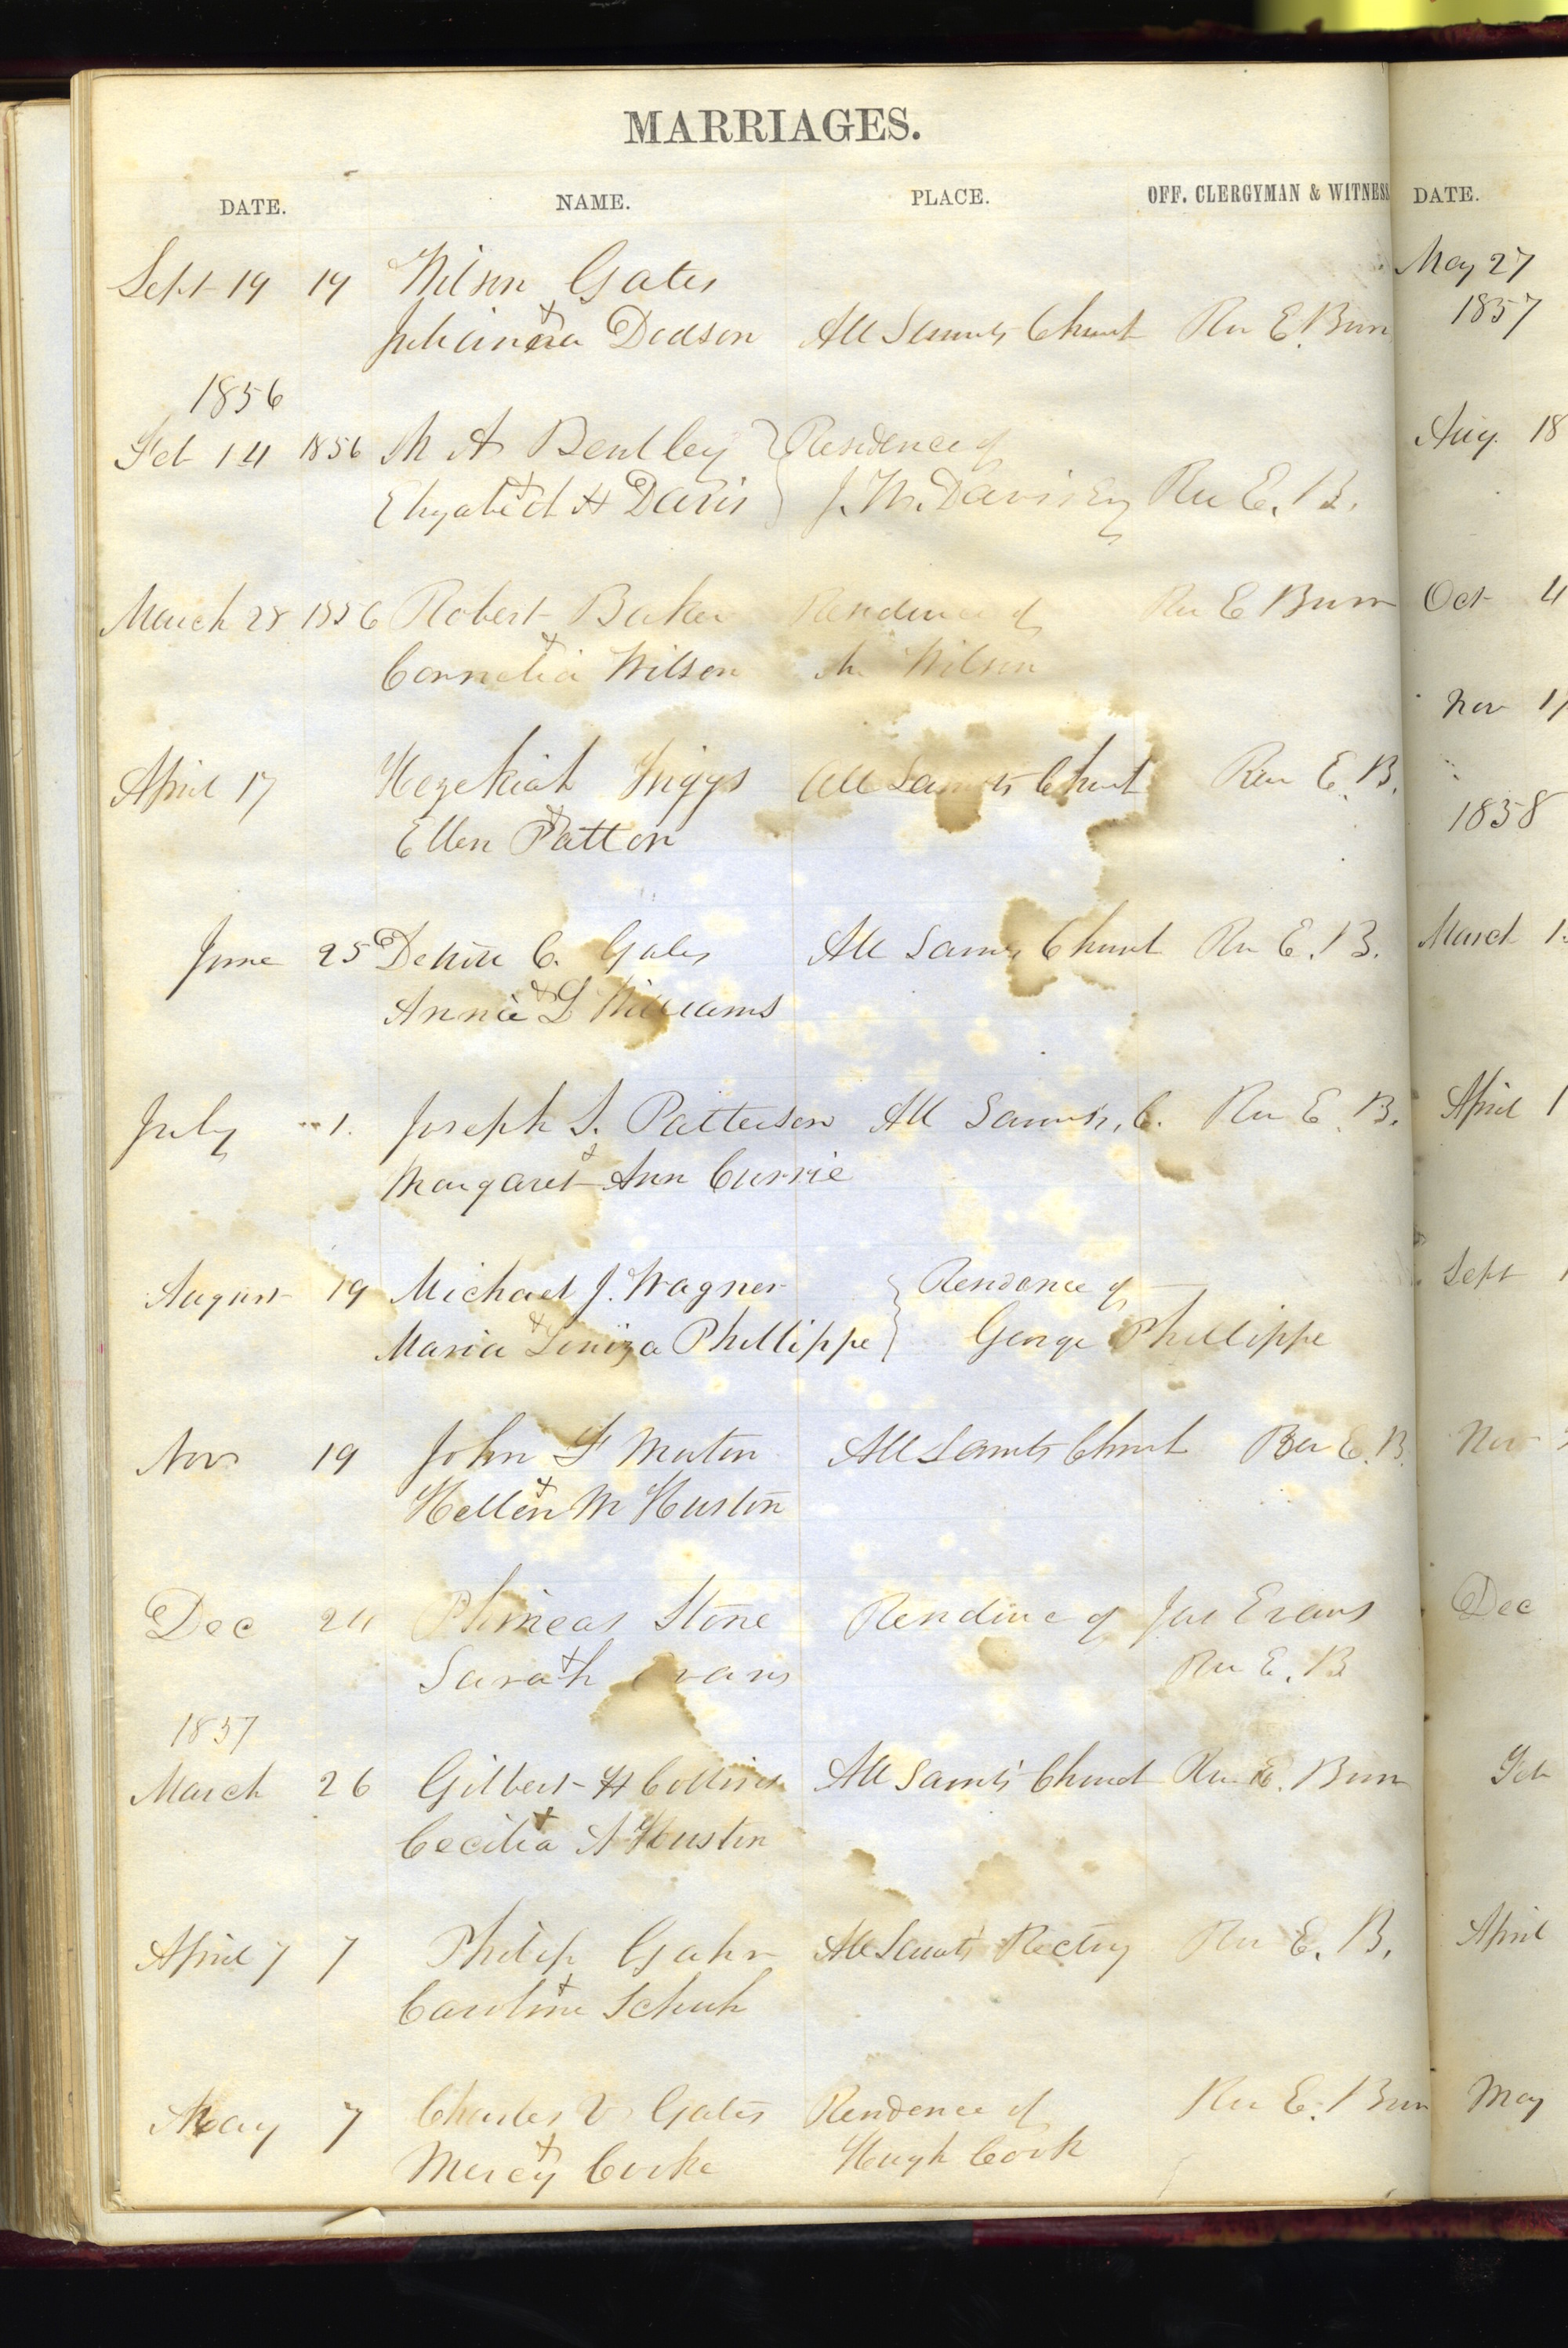 MARRIAGES.
DATE. NAME. PLACE. OFF. CLERGYMAN & WITNESS
Sept 19 19 Wilson Gates
&
Dodson All Saints Church Rev E. Burr
1856
Feb 14 1856 M A Bentley Residence of
&
Elizabeth H Davis J. M. Davis Esq Rev E. B.
March 28 1856 Robert Baker Residence of Rev E Burr
&
Cornelia Wilson Mr Wilson
April 17 Hezekiah Griggs All Saints Church Rev E. B.
&
Ellen Patton
June 25 C. Gates All Saints Church Rev E. B.
&
Annie L Williams
July 1. Joseph S. Patterson All Saints, C. Rev E. B.
&
Margaret Ann Currie
August 19 Michael J. Wagner Residence of
&
Maria Louiza Phillippe George Phillippe
Nov 19 John F All Saints Church Rev E. B.
&
Hellen M Huston
Dec 24 Phineas Stone Residence of Jas Evans
&
Sarah Evans Rev E. B
1857
March 26 Gilbert H Collins All Saints Church Rev E. Burr
&
Cecilia A Huston
April 7 7 Philip Gahr All Saints Rectory Rev E. B.
&
Caroline Schuh
May 7 Charles V Gates Residence of Rev E. Burr
&
Mercy Cooke Hugh Cook
DATE.
May 27
1857
Aug. 18
Oct 4
Nov
1858
March
April
Sept
Nov
Dec
Feb
April
May